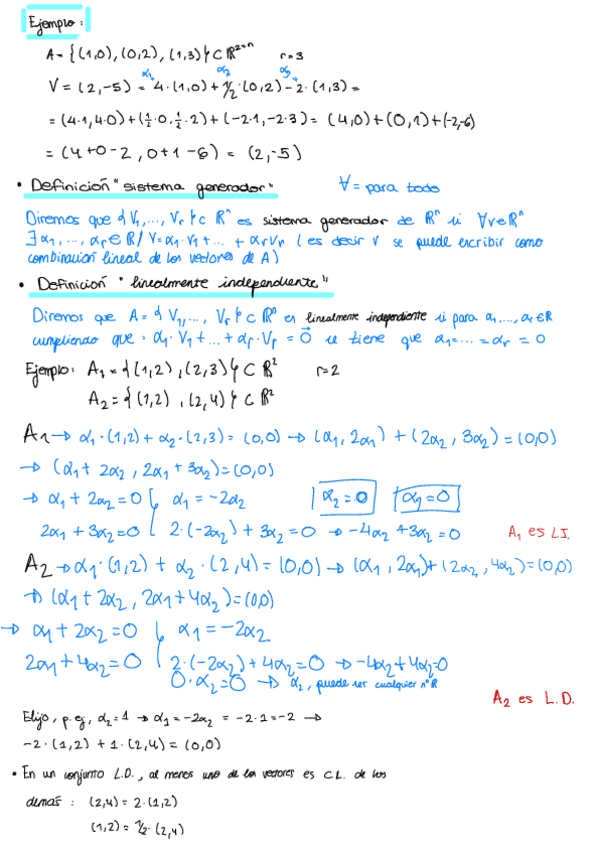 Ejemplo:
A = {(1,0), (0,2), (1,3)} ⊂ ℝ²⁼ⁿ r=3
α₁ α₂ α₃
V = (2,-5) = 4·(1,0) + 1/2·(0,2) - 2·(1,3) =
= (4·1, 4·0) + (1/2·0, 1/2·2) + (-2·1, -2·3) = (4,0) + (0,1) + (-2,-6)
= (4+0-2, 0+1-6) = (2,-5)
• Definición "sistema generador" ∀ = para todo
Diremos que {V₁,..., Vᵣ} ⊂ ℝⁿ es sistema generador de ℝⁿ si ∀v∈ℝⁿ
∃ α₁,..., αᵣ∈ℝ / V=α₁·V₁+... + αᵣVᵣ (es decir V se puede escribir como
combinación lineal de los vectores de A)
• Definición "linealmente independiente"
Diremos que A = {V₁,..., Vᵣ} ⊂ ℝⁿ es linealmente independiente si para α₁,..., αᵣ∈ℝ
cumpliendo que: α₁·V₁+...+αᵣ·Vᵣ = 0⃗ se tiene que α₁=...=αᵣ = 0
Ejemplo: A₁ = {(1,2), (2,3)} ⊂ ℝ² r=2
A₂ = {(1,2), (2,4)} ⊂ ℝ²
A₁ → α₁·(1,2) + α₂·(2,3) = (0,0) → (α₁, 2α₁) + (2α₂, 3α₂) = (0,0)
→ (α₁+2α₂, 2α₁+3α₂) = (0,0)
→ α₁+2α₂=0 } α₁ = -2α₂ α₂=0 α₁=0
2α₁+3α₂=0 } 2·(-2α₂) + 3α₂ = 0 → -4α₂+3α₂=0 A₁ es L.I.
A₂ → α₁·(1,2) + α₂·(2,4) = (0,0) → (α₁, 2α₁) + (2α₂, 4α₂) = (0,0)
→ (α₁+2α₂, 2α₁+4α₂) = (0,0)
→ α₁+2α₂=0 } α₁ = -2α₂
2α₁+4α₂=0 } 2·(-2α₂) + 4α₂=0 → -4α₂+4α₂=0
0·α₂=0 → α₂, puede ser cualquier nº ℝ
A₂ es L.D.
Elijo, p.ej, α₂=1 → α₁=-2α₂ = -2·1=-2 →
-2·(1,2) + 1·(2,4) = (0,0)
• En un conjunto L.D., al menos uno de los vectores es C.L. de los
demás: (2,4) = 2·(1,2)
(1,2) = 1/2·(2,4)